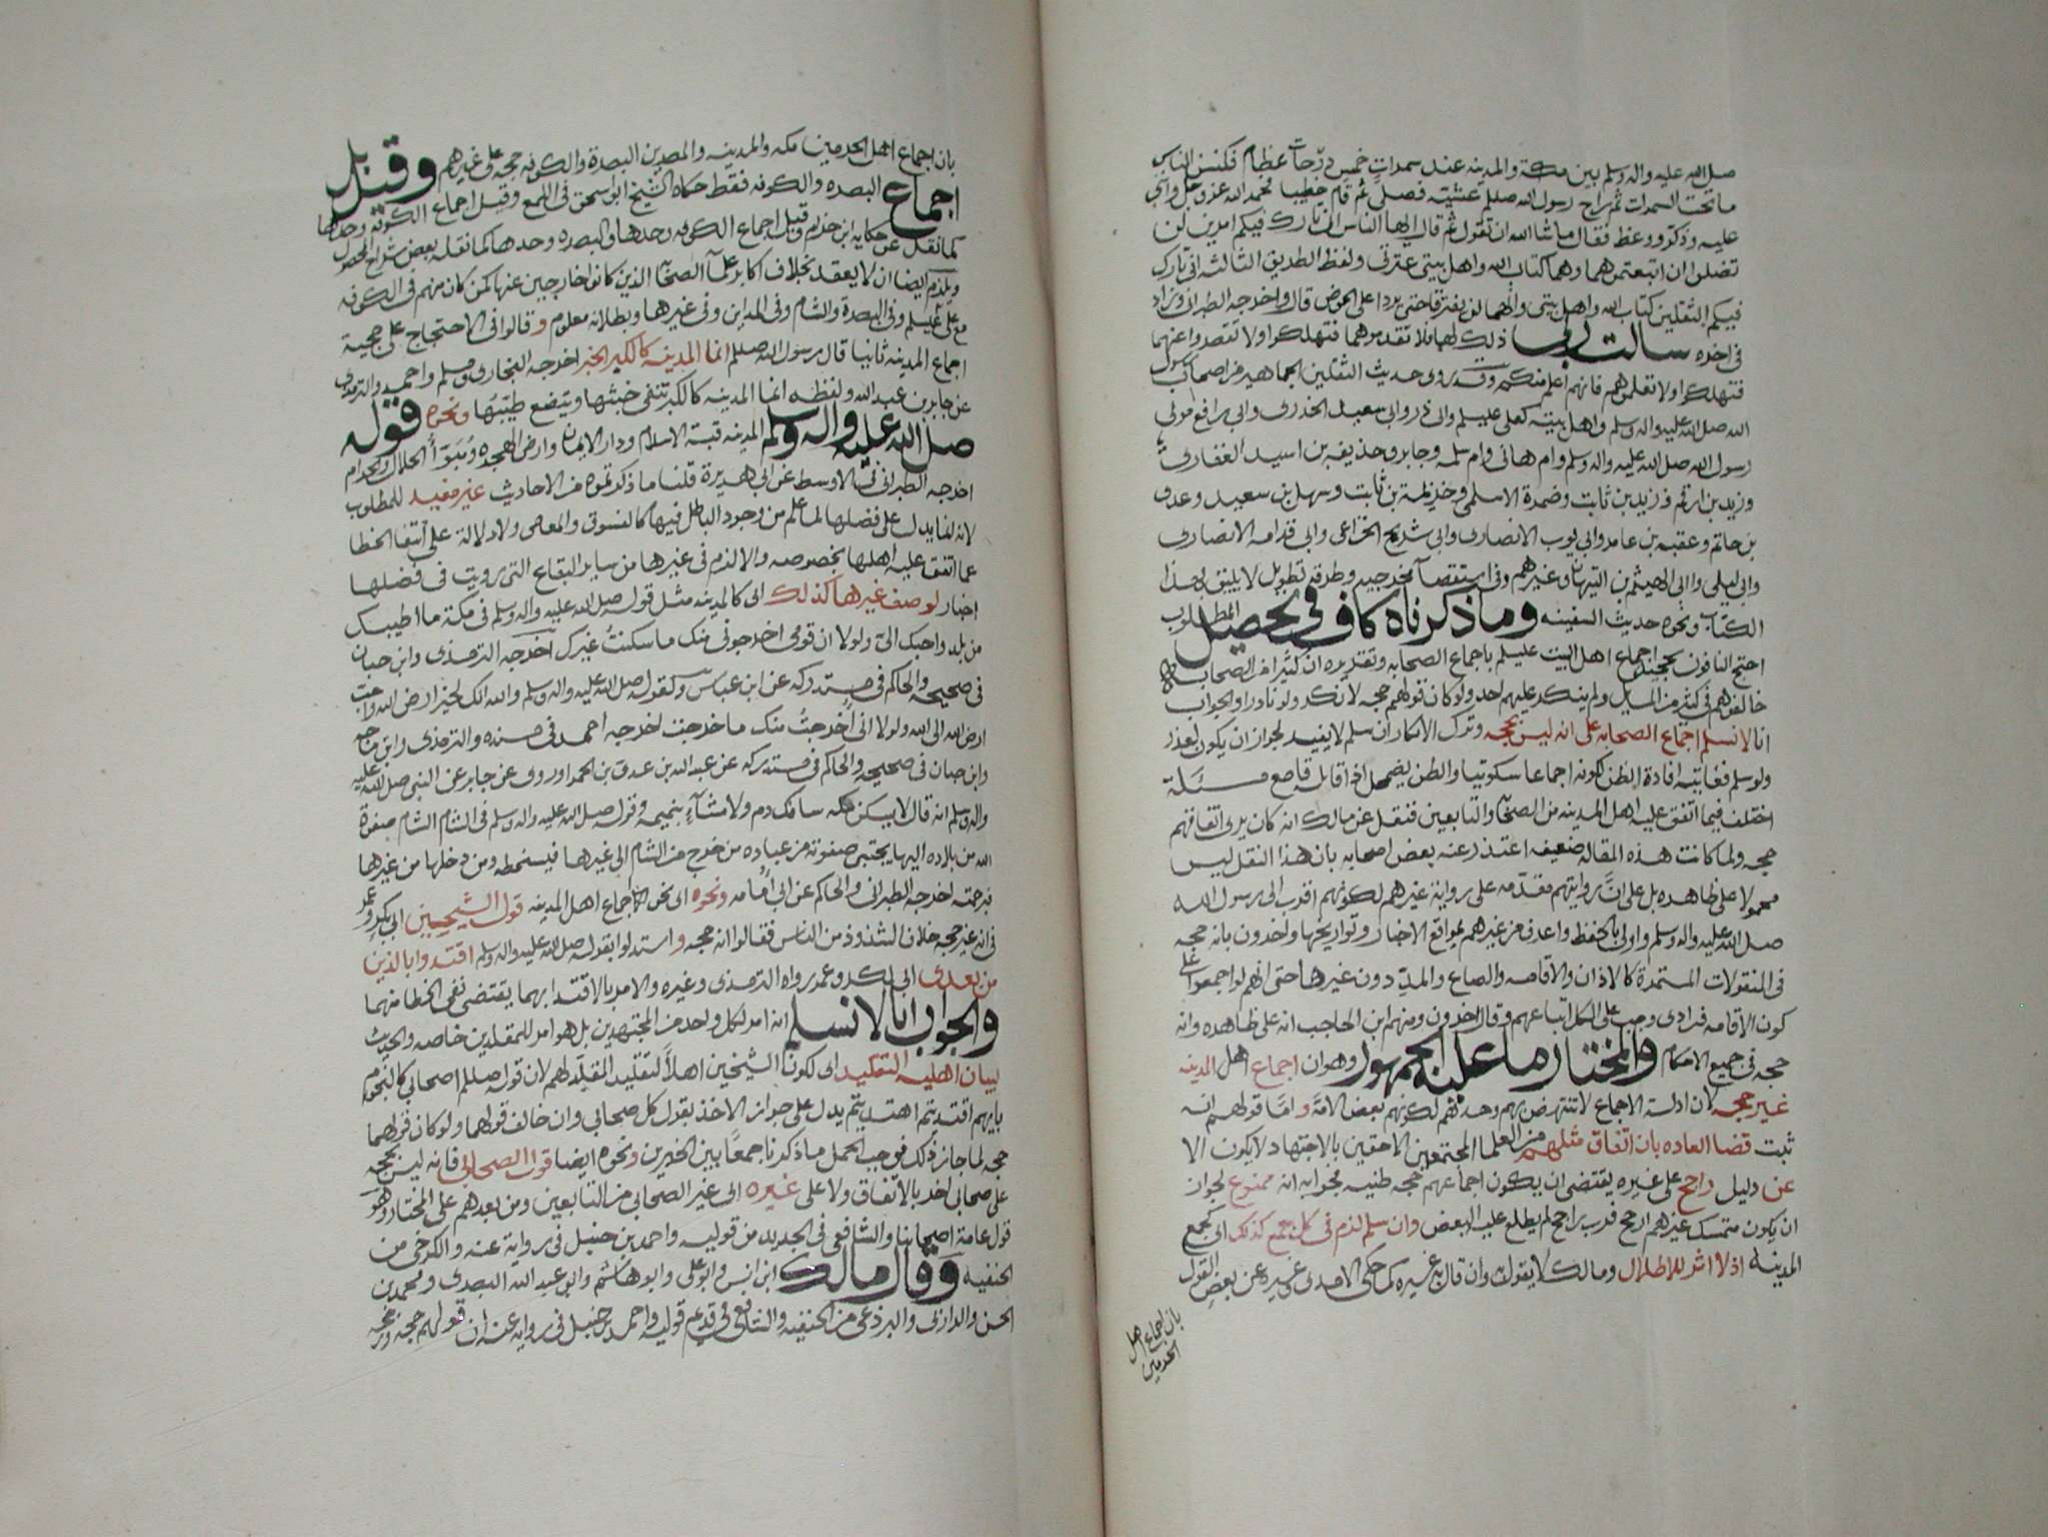 صلى الله عليه واله وسلم بين مكة والمدينه عند سمرات خمس دوحات عظام فكنس الناس
ما تحت السمرات ثم راح رسول الله صللم عشية فصلى ثم قام خطيبا فحمد الله عز وجل واثنى
عليه وذكر ووعظ فقال ما شا الله ان تقول ثم قال ايها الناس اني تارك فيكم امرين لن
تضلوا ان اتبعتموهما وهما كتاب الله واهل بيتي عترتي ولفظ الطريق الثالثه اني تارك
فيكم الثقلين كتاب الله واهل بيتي وانهما لن يفترقا حتى يردا على الحوض قال واخرجه الطبراني وزاد
في اخره سالت ربي ذلك لهما فلا تقدموهما فتهلكوا ولا تقصروا عنهما
فتهلكوا ولا تعلموهم فانهم اعلم منكم وقد روى حديث الثقلين الجماهير من اصحاب رسول
الله صلى الله عليه واله وسلم واهل بيته كعلي عليلم وابي ذر وابي سعيد الخدري وابي رافع مولى
رسول الله صلى الله عليه واله وسلم وام هاني وام سلمه وجابر وحذيفه بن اسيد الغفاري
وزيد بن ارقم وزيد بن ثابت وضمرة الاسلمي وخزيمة بن ثابت وسهل بن سعيد وعدي
بن حاتم وعقبه بن عامر وابي ايوب الانصاري وابي شريح الخزاعي وابي قدامه الانصاري
وابي ليلى وابي الهيثم بن التيهان وغيرهم وفي استقصا مخرجيه وطرقه تطويل لا يليق بهذا
الكتاب ونحوه حديث السفينه وما ذكرناه كاف في تحصيل المطلوب
احتج النافون لحجية اجماع اهل البيت عليلم باجماع الصحابه وتقديره ان كثيرا من الصحابه
خالفوهم في كثير من المسايل ولم ينكر عليهم احد ولو كان قولهم حجه لانكر ولو نادرا والجواب
انا لا نسلم اجماع الصحابه على انه ليس بحجه وترك الانكار ان سلم لا يفيد لجواز ان يكون لعذر
ولو سلم فغايته افادة الظن لكونه اجماعا سكوتيا والظن يضمحل اذا قابله قاطع مسئلة
اختلف فيما اتفق عليه اهل المدينه من الصحابه والتابعين فنقل عن مالك انه كان يرى اتفاقهم
حجه ولما كانت هذه المقاله ضعيفه اعتذر عنه بعض اصحابه بان هذا النقل ليس
محمولا على ظاهره بل على ان روايتهم مقدمه على رواية غيرهم لكونهم اقرب الى رسول الله
صلى الله عليه واله وسلم واولى بالحفظ واعرف من غيرهم بمواقع الاخبار وتواريخها واخرون بانه حجه
في المنقولات المستمرة كالاذان والاقامه والصاع والمد دون غيرها حتى انهم لو اجمعوا على
كون الاقامه فرادى وجب على الكل اتباعهم وقال اخرون ومنهم ابن الحاجب انه على ظاهره وانه
حجه في جميع الاحكام والمختار ما عليه الجمهور وهو ان اجماع اهل المدينه
غير حجه لان ادلة الاجماع لا تنتهض بهم وحدهم لكونهم بعض الامة واما قولهم انه
ثبت قضا العاده بان اتفاق مثلهم من العلما المجتمعين الاحقين بالاجتهاد لا يكون الا
عن دليل راجح على غيره يقتضي ان يكون اجماعهم حجه ظنيه فجوابه انه ممنوع لجواز
ان يكون متمسك غيرهم ارجح فرب راجح لم يطلع عليه البعض وان سلم لزم في كل جمع كذلك اي كجمع
المدينة اذ لا اثر للاطلال ومالك لا يقول به وان قال به غيره كما حكى الامدي وغيره عن بعض القول
بان اجماع اهل
الحرمين
بان اجماع اهل الحرمين مكه والمدينه والمصرين البصرة والكوفه حجه على غيرهم وقيل
اجماع البصره والكوفه فقط حكاه الشيخ ابو اسحق في اللمع وقيل اجماع الكوفه وحدها
كما نقل عن حكايه ابن حزم وقيل اجماع الكوفه وحدها والبصره وحدها كما نقله بعض شراح المحصول
ويلزم ايضا ان لا يعقد بخلاف اكابر علما الصحابه الذين كانوا خارجين عنها كمن كان منهم في الكوفه
مع علي عليلم وفي البصرة والشام وفي المداين وفي غيرها وبطلانه معلوم وقالوا في الاحتجاج على حجية
اجماع المدينه ثانيا قال رسول الله صللم انما المدينه كالكير الخبر اخرجه البخاري ومسلم واحمد والترمذي
عن جابر بن عبد الله ولفظه انما المدينه كالكير تنفي خبثها وتنصع طيبها ونحوه قوله
صلى الله عليه واله وسلم المدينه قبة الاسلام ودار الايمان وارض الهجره ومبوأ الحلال والحرام
اخرجه الطبراني في الاوسط عن ابي هريرة قلنا ما ذكرتموه من الاحاديث غير مفيد للمطلوب
لانه انما يدل على فضلها لما علم من وجود الباطل فيها كالفسوق والمعاصي ولا دلالة على انتفا الخطا
عما اتفق عليه اهلها بخصوصه والا لزم في غيرها من ساير البقاع التي رويت في فضلها
اخبار لوصف غيرها كذلك اي كالمدينه مثل قوله صلى الله عليه واله وسلم في مكة ما اطيبك
من بلد واحبك الي ولولا ان قومي اخرجوني منك ما سكنت غيرك اخرجه الترمذي وابن حبان
في صحيحه والحاكم في مستدركه عن ابن عباس وكقوله صلى الله عليه واله وسلم والله انك لخير ارض الله واحب
ارض الله الى الله ولولا اني اخرجت منك ما خرجت اخرجه احمد في مسنده والترمذي وابن ماجه
وابن حبان في صحيحه والحاكم في مستدركه عن عبد الله بن عدي بن الحمرا وروى عن جابر عن النبي صلى الله عليه
واله وسلم انه قال لا يسكن مكه سافك دم ولا مشاء بنميمه وقوله صلى الله عليه واله وسلم في الشام الشام صفوة
الله من بلاده اليها يجتبي صفوته من عباده من خرج من الشام الى غيرها فبسخطه ومن دخلها من غيرها
فبرحمته اخرجه الطبراني والحاكم عن ابي امامه ونحوه اي نحو اجماع اهل المدينه قول الشيخين ابي بكر وعمر
في انه غير حجه خلاف لشذوذ من الناس فقالوا انه حجه واستدلوا بقوله صلى الله عليه واله وسلم اقتدوا بالذين
من بعدي ابي بكر وعمر رواه الترمذي وغيره والامر بالاقتدا بهما يقتضي نفي الخطا منهما
والجواب انا لا نسلم انه امر لكل واحد من المجتهدين بل هو امر للمقلدين خاصه والحديث
لبيان اهليه التقليد اي لكون الشيخين اهلا لتقليد المقلد لهم لان قوله صللم اصحابي كالنجوم
بايهم اقتديتم اهتديتم يدل على جواز الاخذ بقول كل صحابي وان خالف قولهما ولو كان قولهما
حجه لما جاز ذلك فوجب الحمل ما ذكرنا جمعا بين الخبرين ونحوه ايضا قول الصحابي فانه ليس بحجه
على صحابي اخر بالاتفاق ولا على غيره اي غير الصحابي من التابعين ومن بعدهم على المختار وهو
قول عامة اصحابنا والشافعي في الجديد من قوليه واحمد بن حنبل في رواية عنه والكرخي من
الحنفيه وقال مالك ابن انس وابو علي وابو هاشم وابو عبد الله البصري ومحمد بن
الحسن والرازي والبرذعي من الحنفيه والشافعي في قديم قوليه واحمد بن حنبل في رواية عنه ان قولهم حجه